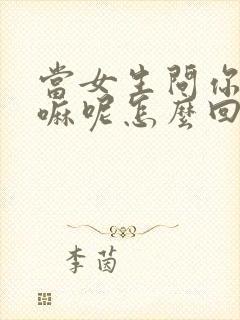 當女生問你
嘛呢怎麼回
李茵